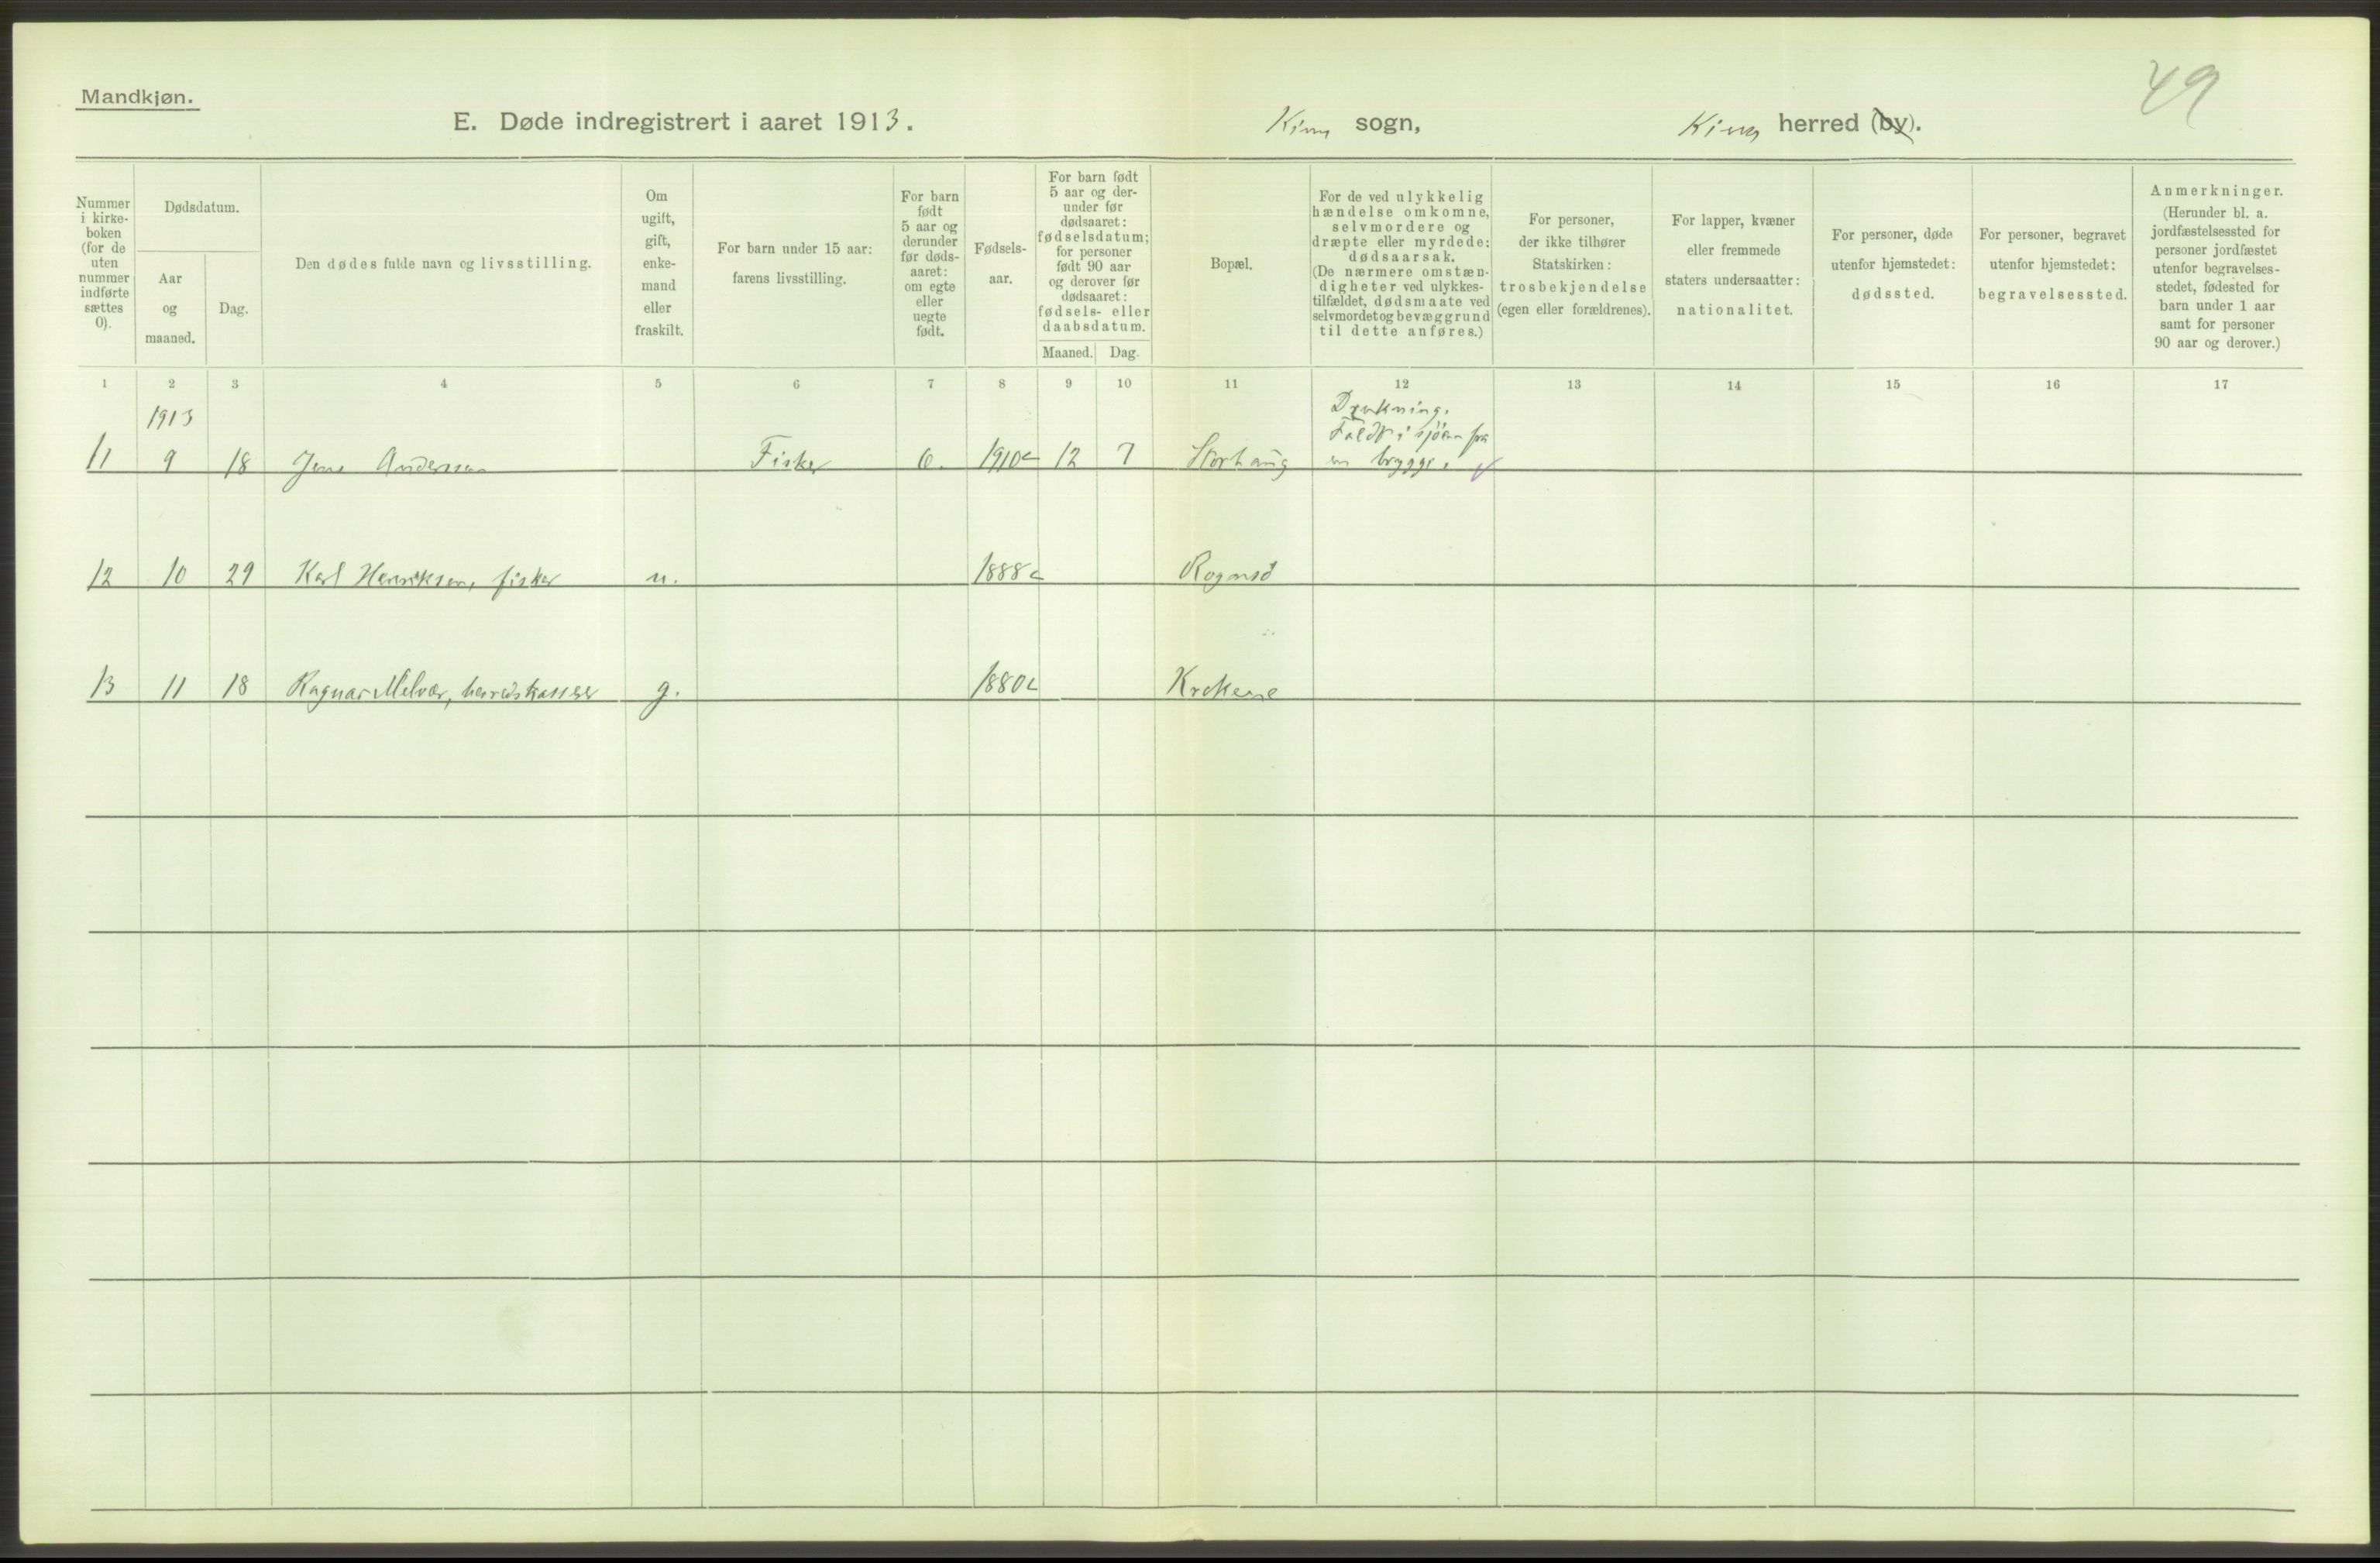 Mandkjøn.
49
E. Døde indregistrert i aaret 1913.
Kinn sogn,
Kinn herred (by).
Nummer i kirke-boken (for de uten nummer indførte sættes 0).
Dødsdatum.
Aar og maaned.
Dag.
Den dødes fulde navn og livsstilling.
Om ugift, gift, enke-mand eller fraskilt.
For barn under 15 aar: farens livsstilling.
For barn født 5 aar og derunder før døds-aaret: om egte eller uegte født.
Fødsels-aar.
For barn født 5 aar og der-under før dødsaaret: fødselsdatum; for personer født 90 aar og derover før dødsaaret: fødsels- eller daabsdatum.
Maaned.
Dag.
Bopæl.
For de ved ulykkelig hændelse omkomne, selvmordere og dræpte eller myrdede: dødsaarsak. (De nærmere omstæn-digheter ved ulykkes-tilfældet, dødsmaate ved selvmordet og bevæggrund til dette anføres.)
For personer, der ikke tilhører Statskirken: trosbekjendelse (egen eller forældrenes).
For lapper, kvæner eller fremmede staters undersaatter: nationalitet.
For personer, døde utenfor hjemstedet: dødssted.
For personer, begravet utenfor hjemstedet: begravelsessted.
Anmerkninger. (Herunder bl. a. jordfæstelsessted for personer jordfæstet utenfor begravelses-stedet, fødested for barn under 1 aar samt for personer 90 aar og derover.)
1 2 3 4 5 6 7 8 9 10 11 12 13 14 15 16 17
1913
Drukning.
Faldt i sjøen fra
11 9 18 Jens Anderssen Fisker e. 1910 12 7 Storhaug en brygge.
12 10 29 Karl Henriksen, fisker u. 1888 Rognsø
13 11 18 Ragnar Melvær, herredskasserer g. 1880 Krokene